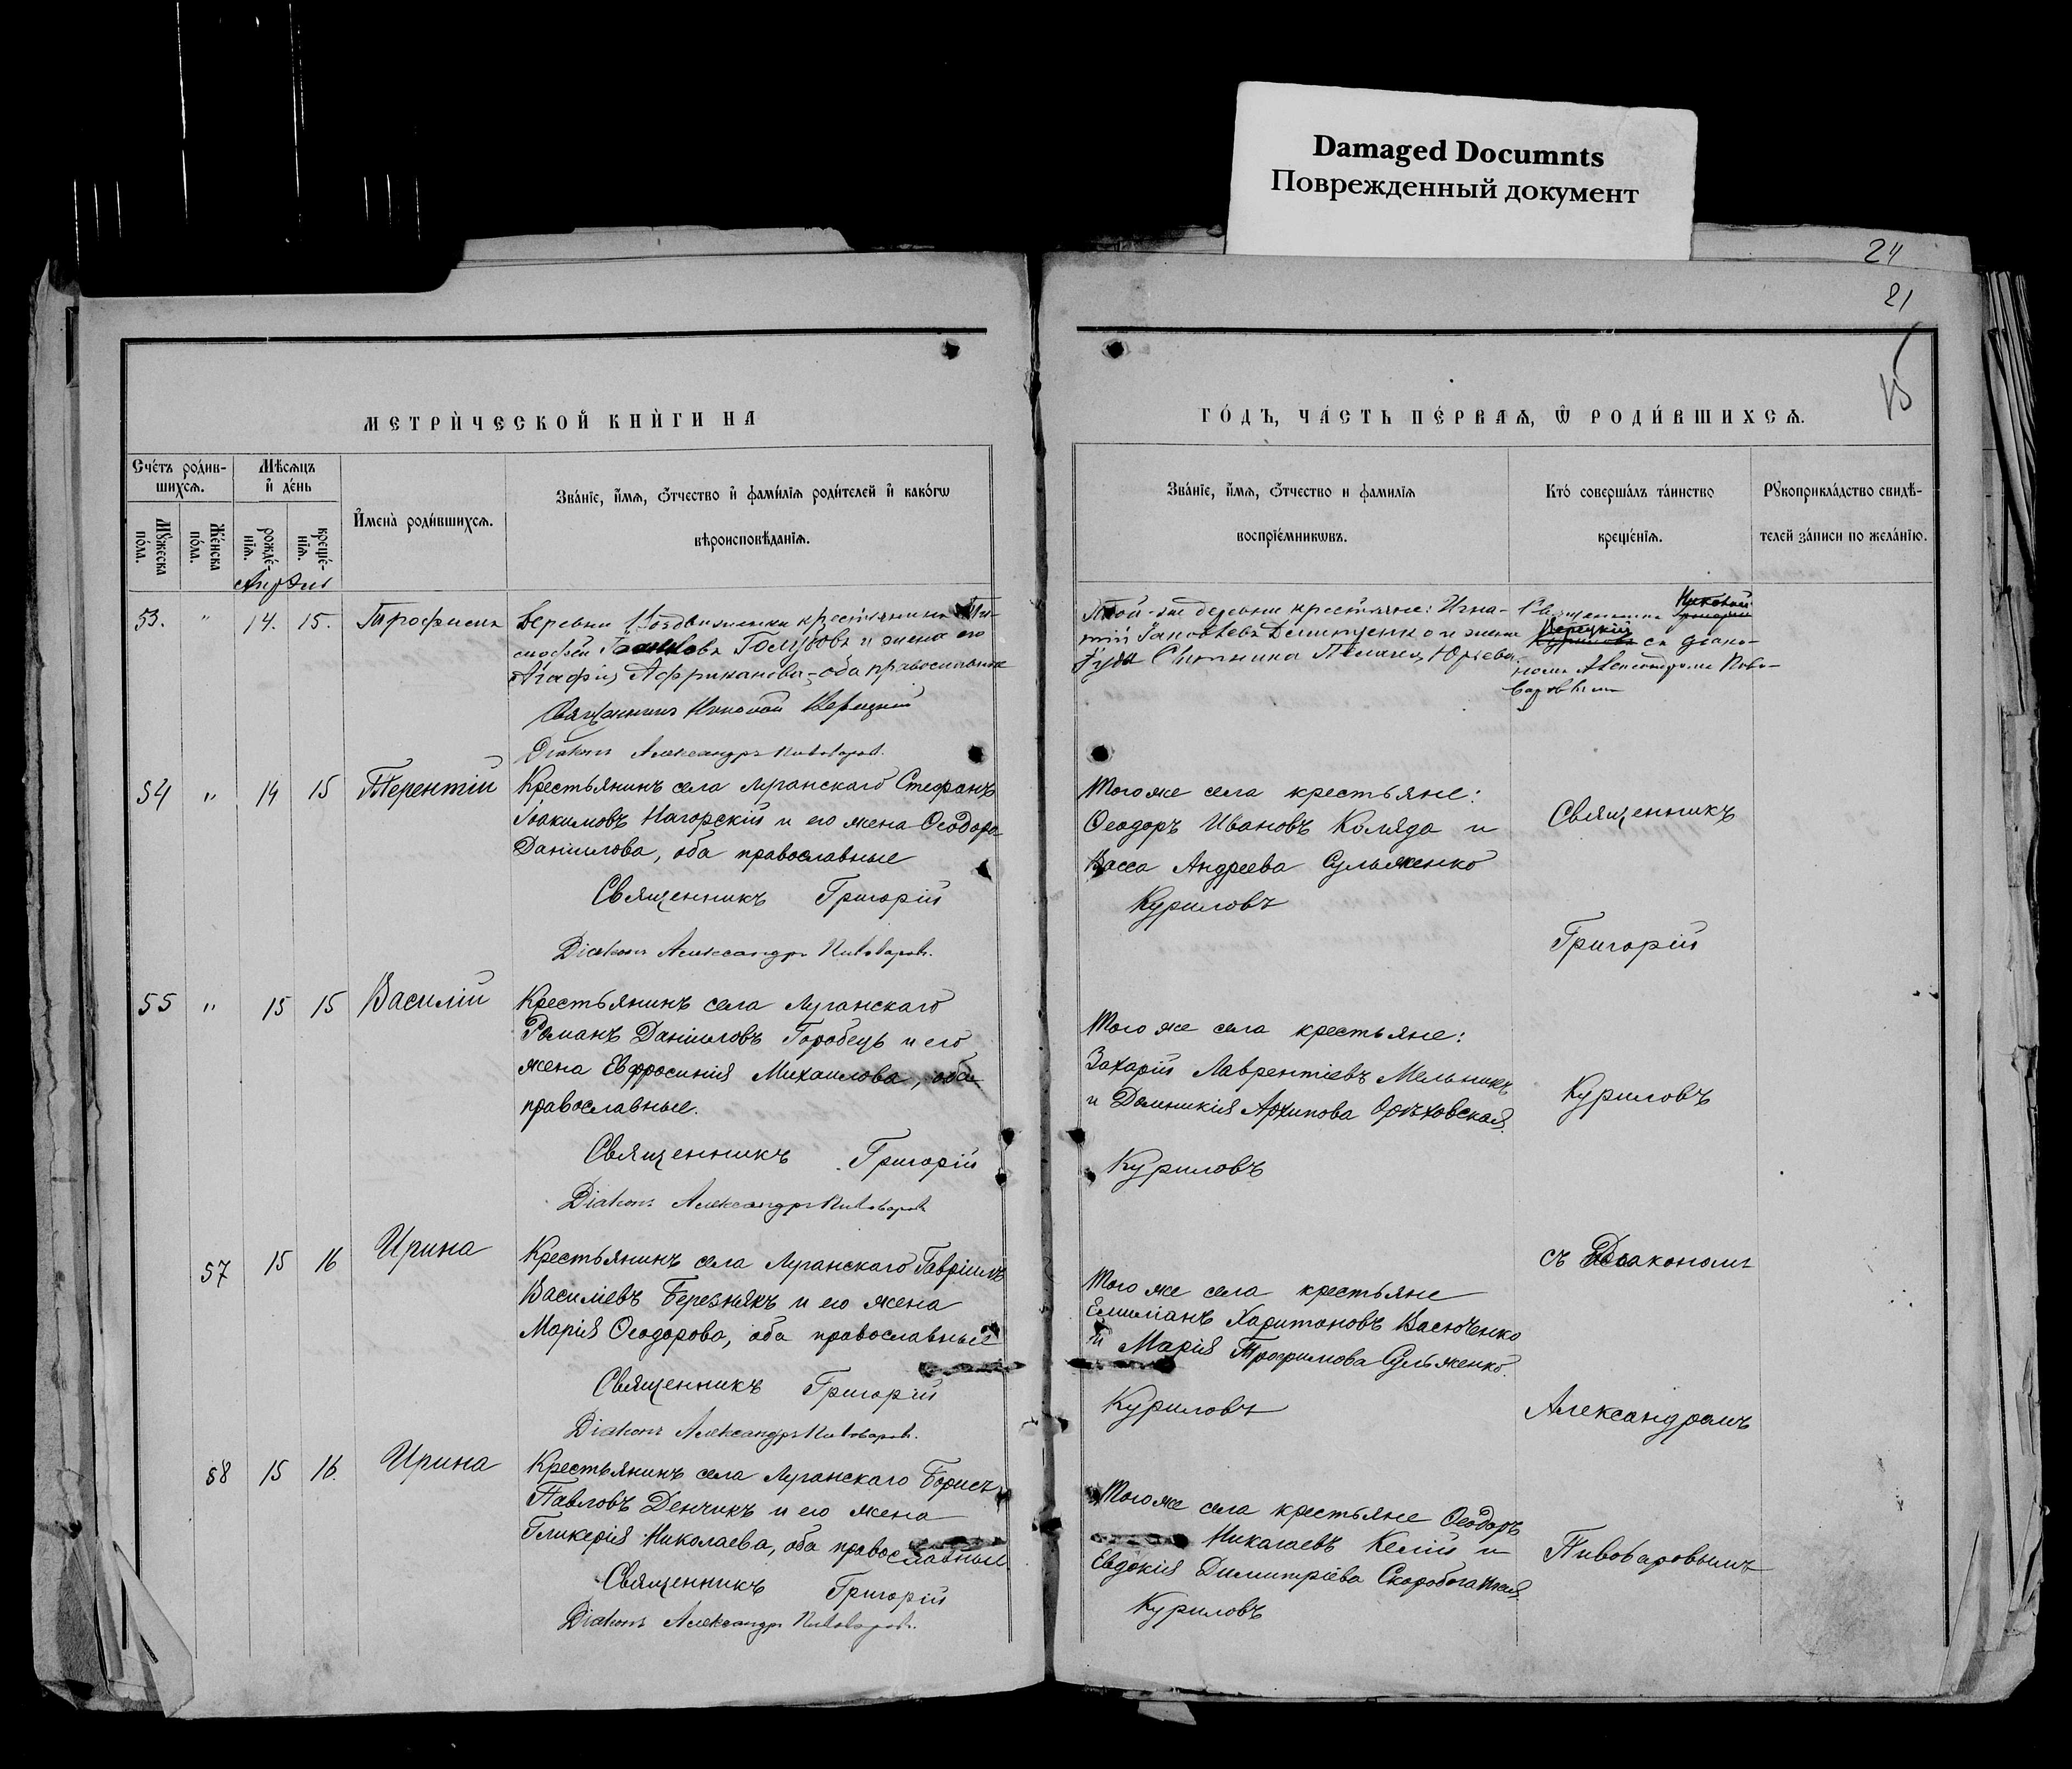 Damaged Documnts
Поврежденный документ
24
21
МЕТРИ́ЧЕСКОЙ КНИ́ГИ НА
ГО́ДЪ, ЧА́СТЬ ПЕ́РВАѦ, Ѿ РОДИ́ВШИХСѦ.
Сче́тъ роди́в-
шихсѧ.
Мѣсѧцъ
и҆ де́нь
И҆мена̀ роди́вшихсѧ.
Зва́нїе, и҆́мѧ, ѻ҆́тчество и҆ фами́лїѧ роди́телей и҆ како́гѡ
вѣроисповѣ́данїѧ.
Зва́нїе, и҆́мѧ, ѻ҆́тчество и фамилїѧ
воспрїе́мникѡвъ.
Кто́ соверша́лъ та́инство
креще́нїѧ.
Рꙋкоприкла́дство свидѣ́-
телей за́писи по жела́нїю.
Мꙋжеска
по́ла.
Же́нска
по́ла.
рожде́-
нїѧ.
креще́-
нїѧ.
Апрѣль
53. " 14. 15. Трофимъ
Деревни крестьянинъ Ти-
мофей Голубовъ и жена его
Агафія Африканова – оба православные
Священникъ Николай Верецкій
Діаконъ Александръ Пивоваров.
Той-же деревни крестьяне: Игна-
тій и жена
Юрьева
Священникъ Николай
Верецкій съ діако-
номъ Александромъ Пиво-
варовымъ
54 " 14 15 Терентій
Крестьянинъ села Луганскаго Стефанъ
Іоакимовъ Нагорскій и его жена Ѳеодора
Даніилова, оба православные
Священникъ Григорій
Діаконъ Александръ Пивоваров.
Тогоже села крестьяне:
Ѳеодоръ Ивановъ Коляда и
Васса Андреева Сульженко
Куриловъ
Священникъ
Григорій
55 " 15 15 Василій
Крестьянинъ села Луганскаго
Романъ Даніиловъ Горобецъ и его
жена Евфросинія Михаилова, оба
православные.
Священникъ Григорій
Діаконъ Александръ Пивоваров
Того же села крестьяне:
Захарій Лаврентіевъ Мельникъ
и Домникія Архипова Орѣховская.
Куриловъ
Куриловъ
57 15 16 Ирина
Крестьянинъ села Луганскаго Гавріилъ
Василіевъ Березнякъ и его жена
Марія Ѳеодорова, оба православные
Священникъ Григорій
Діаконъ Александръ Пивоваров.
съ Діакономъ
Того же села крестьяне
Емиліанъ Харитоновъ Васюченко
и Марія Трофимова Сульженко.
Куриловъ
Александромъ
58 15 16. Ирина
Крестьянинъ села Луганскаго Борисъ
Павловъ Денчикъ и его жена
Гликерія Николаева, оба православные
Священникъ Григорій
Діаконъ Александръ Пивоваров.
Тогоже села крестьяне Ѳеодоръ
Николаевъ Келій и
Евдокія Димитріева Скоробогатая.
Куриловъ
Пивоваровымъ